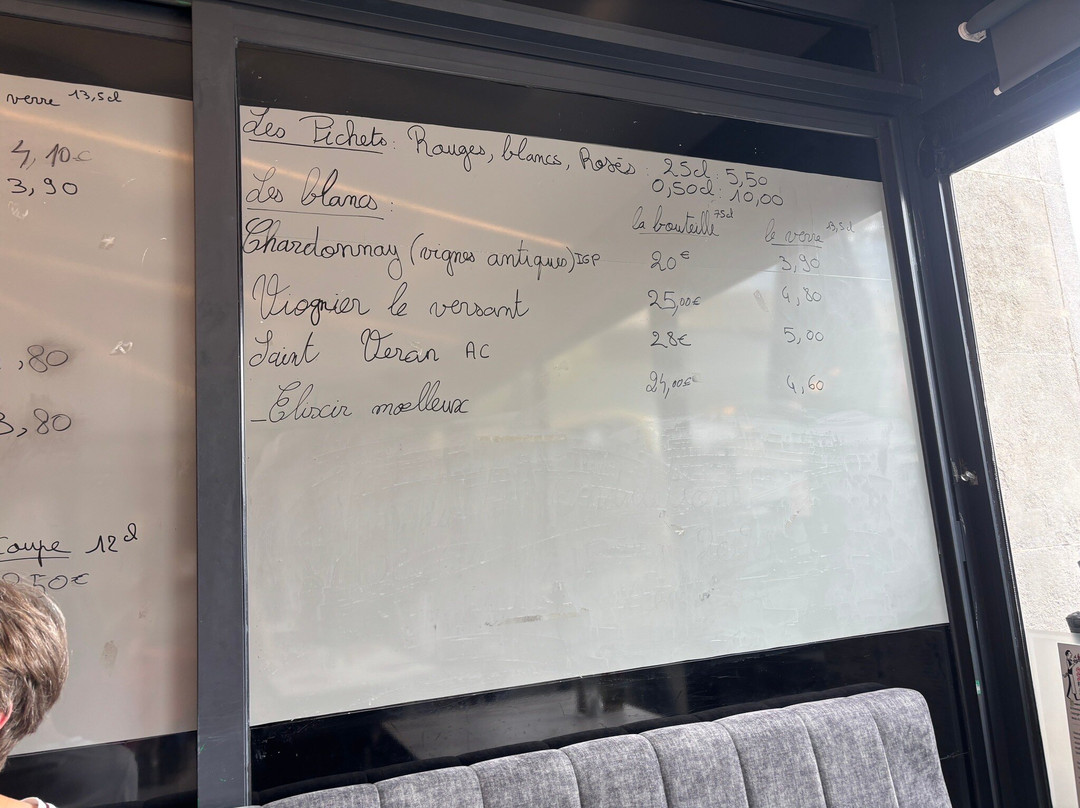 verre 13,5cl
4,10€
3,90
,80
3,80
Coupe 12cl
Les Pichets : Rouges, blancs, Rosés : 25cl : 5,50
0,50cl : 10,00
Les blancs :
la bouteille 75cl le verre 13,5cl
Chardonnay (vignes antiques) IGP 20€ 3,90
Viognier le versant 25,00€ 4,80
Saint Veran AC 28€ 5,00
_Elixir moelleux 24,00€ 4,60